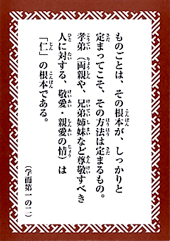 ものごとは、その根本が、しっかりと
定まってこそ、その方法は定まるもの。
孝弟（両親や、兄弟姉妹など尊敬すべき
人に対する、敬愛・親愛の情）は
「仁」の根本である。
（学而第一の二）